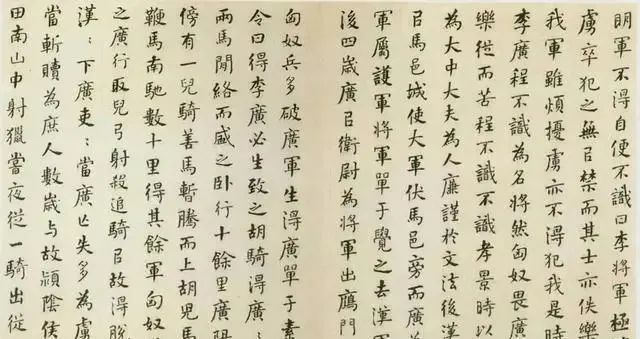 明軍不得自便不識曰李將軍極
虜卒犯之無㠯禁而其士亦佚樂
我軍雖煩擾虜亦不得犯我是時
李廣程不識為名將然匈奴畏廣
樂從而苦程不識不識孝景時以
為大中大夫為人廉謹於文法後漢
㠯馬邑城使大軍伏馬邑旁而廣
軍屬護軍將軍單于覺之去漢軍
後四歲廣㠯衛尉為將軍出鴈門
匈奴兵多破廣軍生得廣單于素
令曰得李廣必生致之胡騎得廣：
兩馬間絡而盛之卧行十餘里廣陽
傍有一兒騎善馬暫騰而上胡兒馬
鞭馬南馳數十里得其餘軍匈奴
之廣行取兒弓射殺追騎㠯故得脫
漢：下廣吏：當廣亡失多為虜
當斬贖為庶人數歲与故潁陰侯
田南山中射獵嘗夜從一騎出從